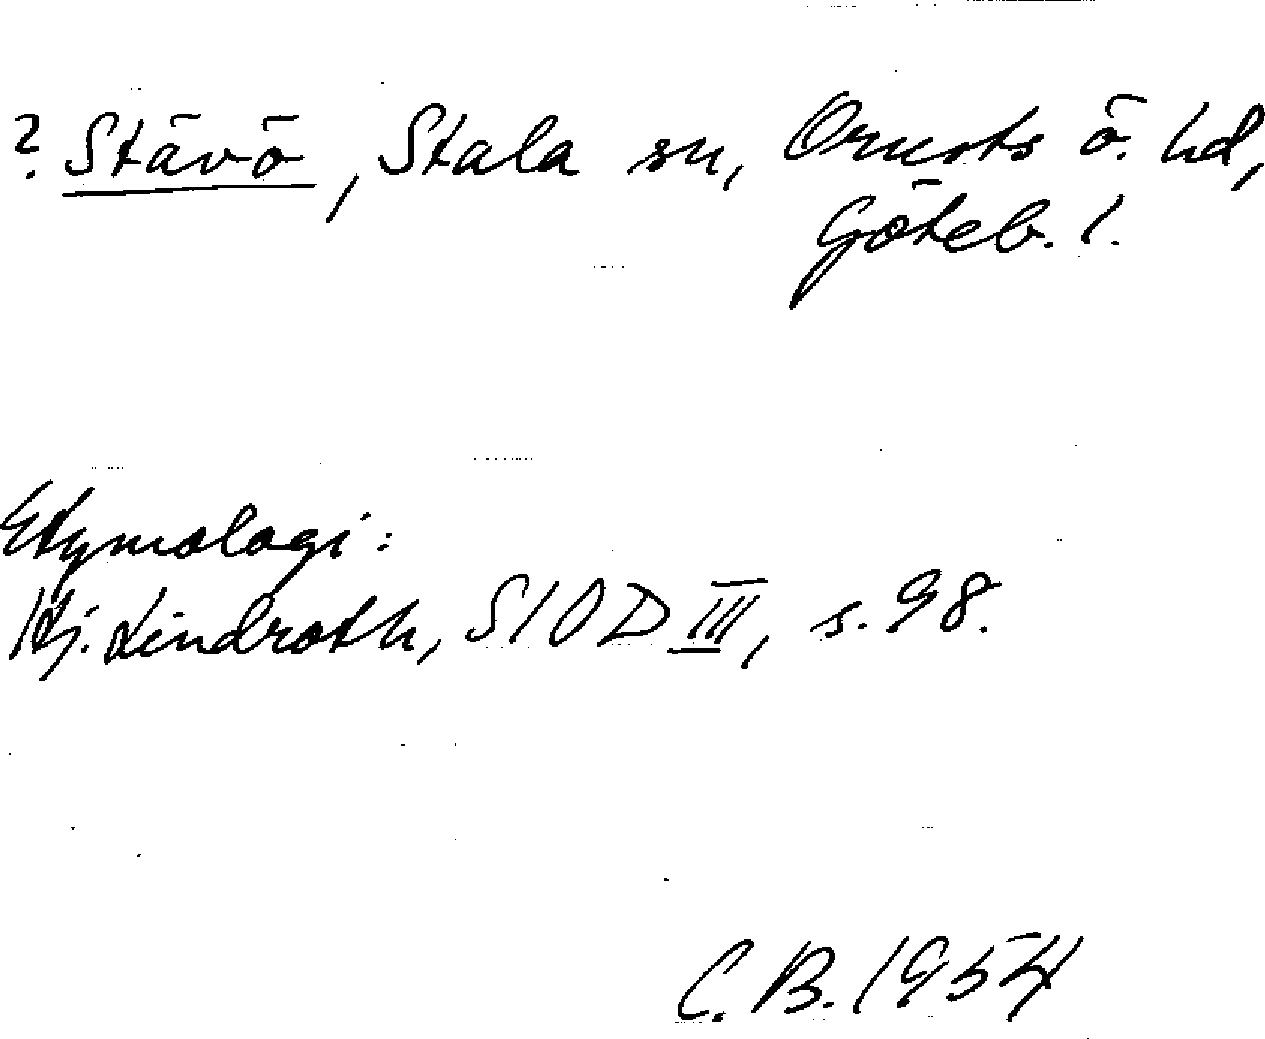 ? Stävö, Stala sn, Orusts ö. hd,
Göteb. l.
Etymologi:
Hj. Lindroth, SIOD III, s. 98.
C. B. 1954